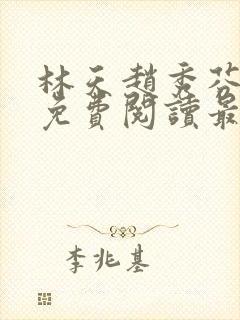 林天趙秀芬
免費閱讀最
李兆基